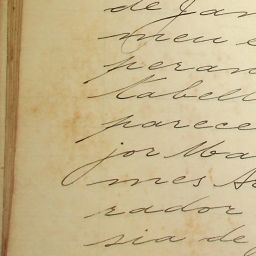 de Jan
meu e
peran
Tabell
parece
jor Ma
mes A
rador
sia de